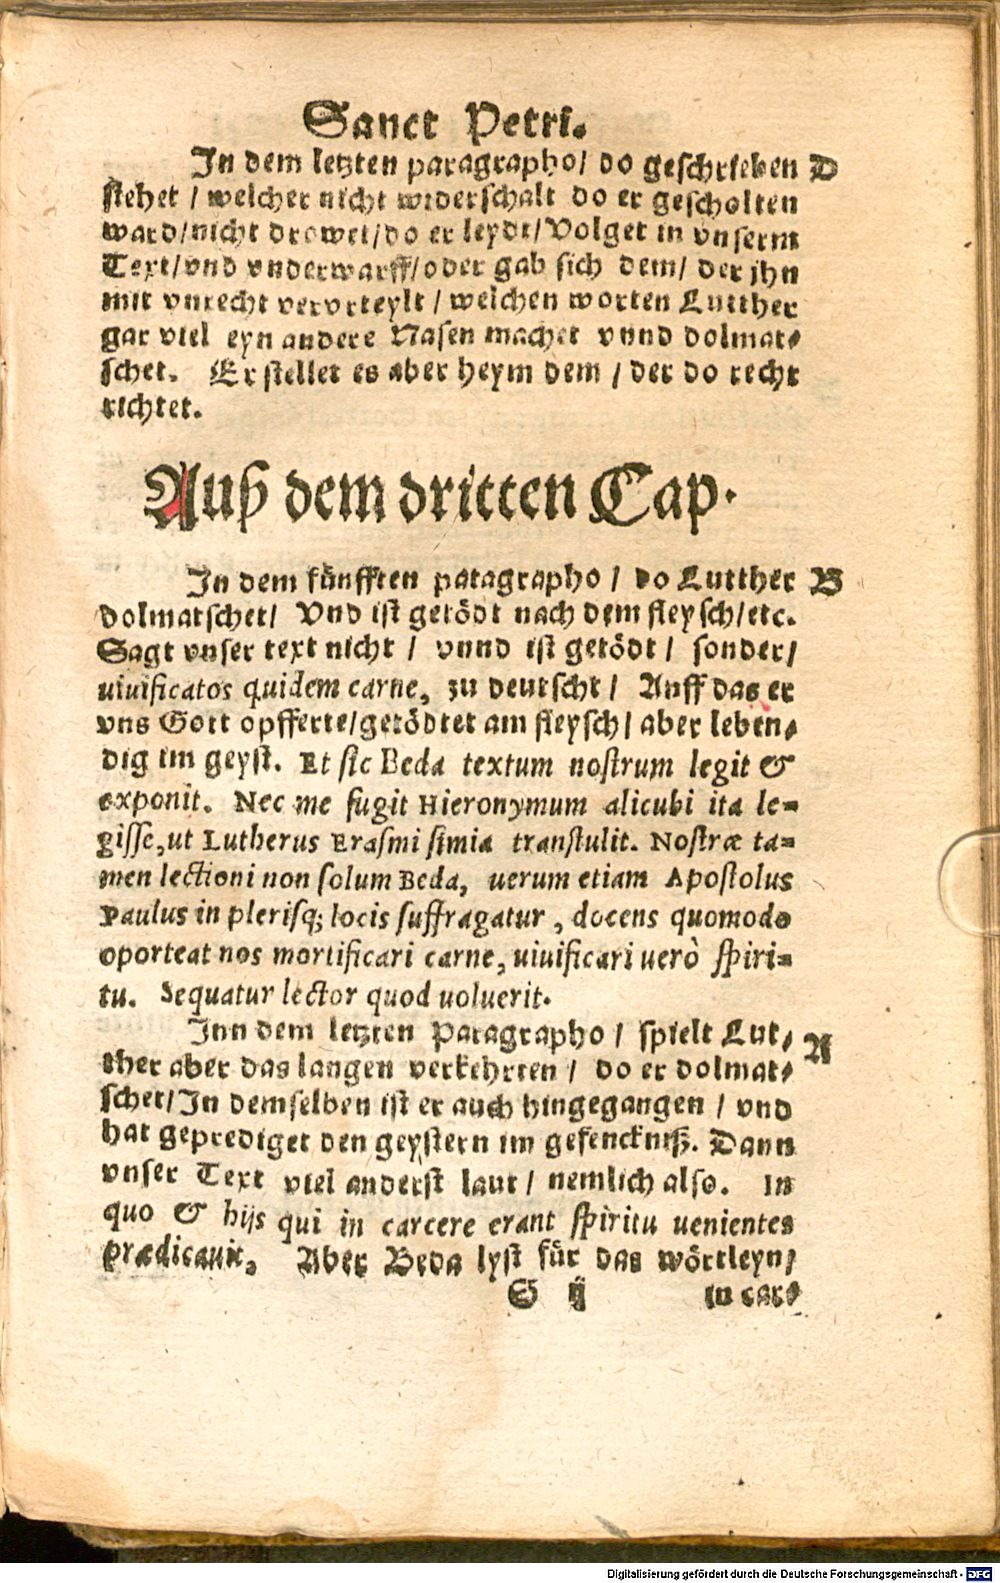 Sanct Petri.
In dem letzten paragrapho/ do geschrieben D
stehet / welcher nicht widerschalt do er gescholten
ward/nicht drowet/do er leydt/Volget in vnserm
Text/vnd vnderwarff/oder gab sich dem/ der jhn
mit vnrecht vervrteylt / welchen worten Lutther
gar viel eyn andere Nasen machet vnnd dolmat⸗
schet. Er stellet es aber heym dem / der do recht
richtet.
Auß dem dritten Cap.
In dem fünfften paragrapho / do Lutther B
dolmatschet/ Vnd ist getödt nach dem fleysch/etc.
Sagt vnser text nicht / vnnd ist getödt / sonder/
uiuificatos quidem carne, zu deutscht / Auff das er
vns Gott opfferte/getödtet am fleysch/ aber leben⸗
dig im geyst. Et sic Beda textum nostrum legit &
exponit. Nec me fugit Hieronymum alicubi ita le=
gisse,ut Lutherus Erasmi simia transtulit. Nostræ ta=
men lectioni non solum Beda, uerum etiam Apostolus
Paulus in plerisq; locis suffragatur , docens quomodo
oporteat nos mortificari carne, uiuificari uerò spiri=
tu. Sequatur lector quod uoluerit.
Inn dem letzten Paragrapho / spielt Lut⸗ A
ther aber das langen verkehrten / do er dolmat⸗
schet/In demselben ist er auch hingegangen / vnd
hat geprediget den geystern im gefenckniß. Dann
vnser Text viel anderst laut / nemlich also. In
quo & hijs qui in carcere erant spiritu uenientes
prædicauit, Aber Beda lyst für das wörtleyn/
S ij in car⸗
Digitalisierung gefördert durch die Deutsche Forschungsgemeinschaft - DFG